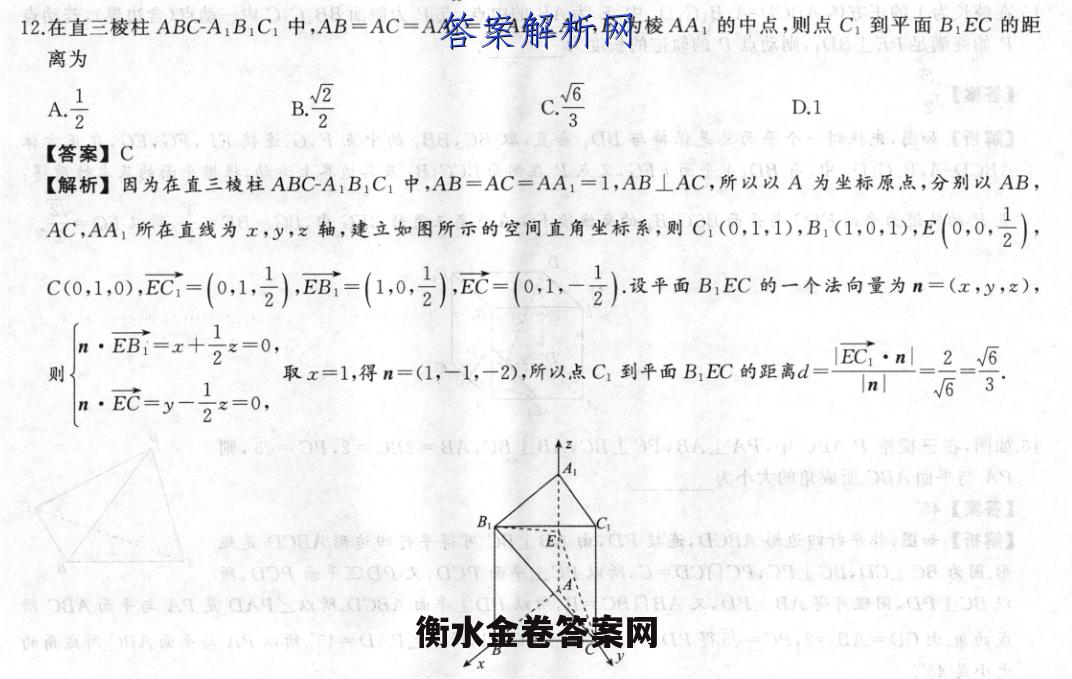 12.在直三棱柱 ABC-A₁B₁C₁ 中,AB=AC=A 答案解析网 为棱 AA₁ 的中点,则点 C₁ 到平面 B₁EC 的距
离为
A.1/2 B.√2/2 C.√6/3 D.1
【答案】C
【解析】因为在直三棱柱 ABC-A₁B₁C₁ 中,AB=AC=AA₁=1,AB⊥AC,所以以 A 为坐标原点,分别以 AB,
AC,AA₁ 所在直线为 x,y,z 轴,建立如图所示的空间直角坐标系,则 C₁(0,1,1),B₁(1,0,1),E(0,0,1/2),
C(0,1,0),EC₁=(0,1,1/2),EB₁=(1,0,1/2),EC=(0,1,-1/2).设平面 B₁EC 的一个法向量为 n=(x,y,z),
则{n·EB₁=x+1/2z=0,
n·EC=y-1/2z=0,
取 x=1,得 n=(1,-1,-2),所以点 C₁ 到平面 B₁EC 的距离d=|EC₁·n|/|n|=2/√6=√6/3.
z
A₁
B₁
C₁
E
A
衡水金卷答案网
B
C
x
y